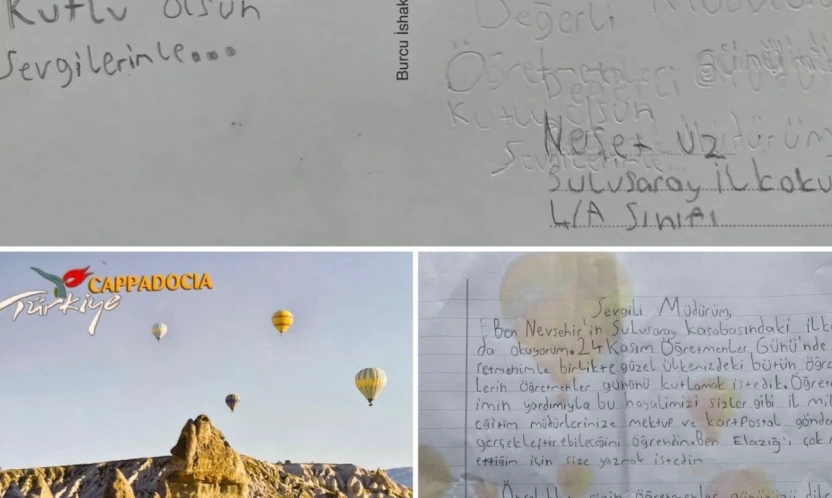 Kutlu Olsun
Sevgilerinle...
Burcu İshak
Değerli
Öğretmenleri Günümü
Kutlu olsun
Neset Uz
Sulusaray İlkoku
4/A Sınıfı
CAPPADOCIA
Türkiye
Sevgili Müdürüm,
Ben Nevşehir'in Sulusaray kasabasındaki ilk
da okuyorum. 24 Kasım Öğretmenler Günü'nde
retmenimle birlikte güzel ülkemizdeki bütün öğre
lerin öğretmenler gününü kutlamak istedik. Öğret
imin yardımıyla bu hayalimizi sizler gibi il mil
eğitim müdürlerinize mektup ve kartpostal gönde
gerçekleştirebileceğimi öğrendim. Ben Elazığ'ı çok
ettiğim için size yazmak istedim